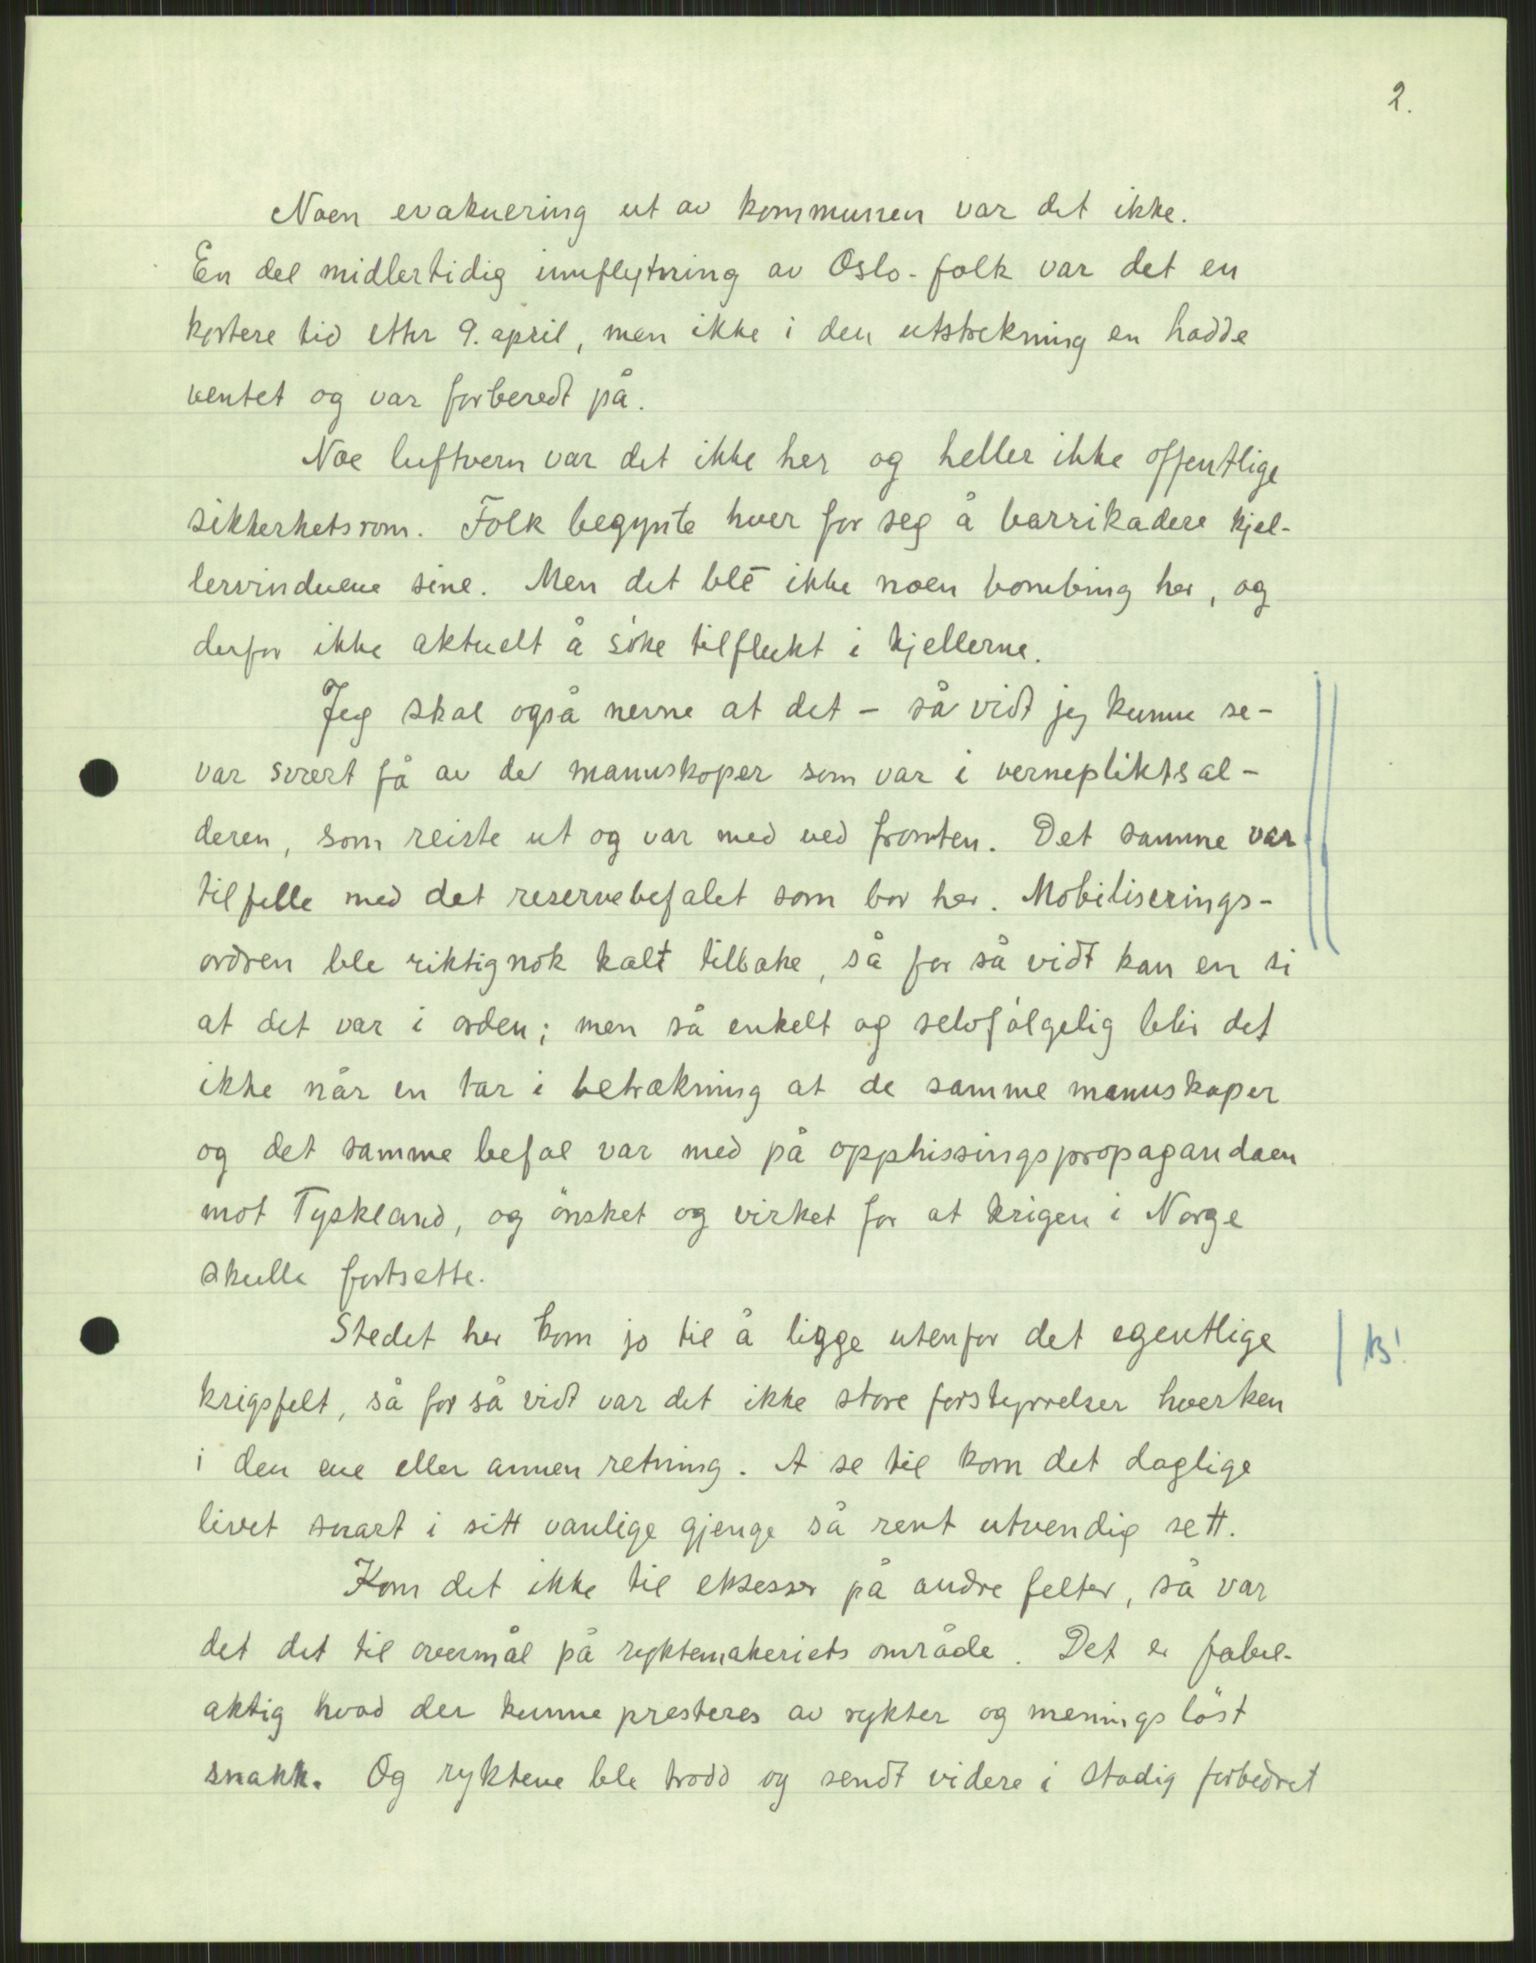 2.
Noen evakuering ut av kommunen var det ikke.
En del midlertidig innflytning av Oslo-folk var det en
kortere tid etter 9. april, men ikke i den utstrekning en hadde
ventet og var forberedt på.
Noe luftvern var det ikke her og heller ikke offentlige
sikkerhetsrom. Folk begynte hver for seg å barrikadere kjel-
lervinduene sine. Men det ble ikke noen bombing her, og
derfor ikke aktuelt å söke tilflukt i kjellerne.
Jeg skal også nevne at det - så vidt jeg kunne se -
var svært få av de mannskaper som var i vernepliktsal-
deren, som reiste ut og var med ved fronten. Det samme var
tilfelle med det reservebefalet som bor her. Mobiliserings-
ordren ble riktignok kalt tilbake, så for så vidt kan en si
at det var i orden; men så enkelt og selvfölgelig blir det
ikke når en tar i betrakning at de samme mannskaper
og det samme befal var med på opphissingspropagandaen
mot Tyskland, og önsket og virket for at krigen i Norge
skulle fortsette.
Stedet her kom jo til å ligge utenfor det egentlige
krigsfelt, så for så vidt var det ikke store forstyrrelser hverken
i den ene eller annen retning. A se til kom det daglige
livet snart i sitt vanlige gjenge så rent utvendig sett.
Kom det ikke til eksesser på andre felter, så var
det det til overmål på ryktemakeriets område. Det er fabel-
aktig hvad der kunne presteres av rykter og meningslöst
snakk. Og ryktene ble trodd og sendt videre i stadig forbedret